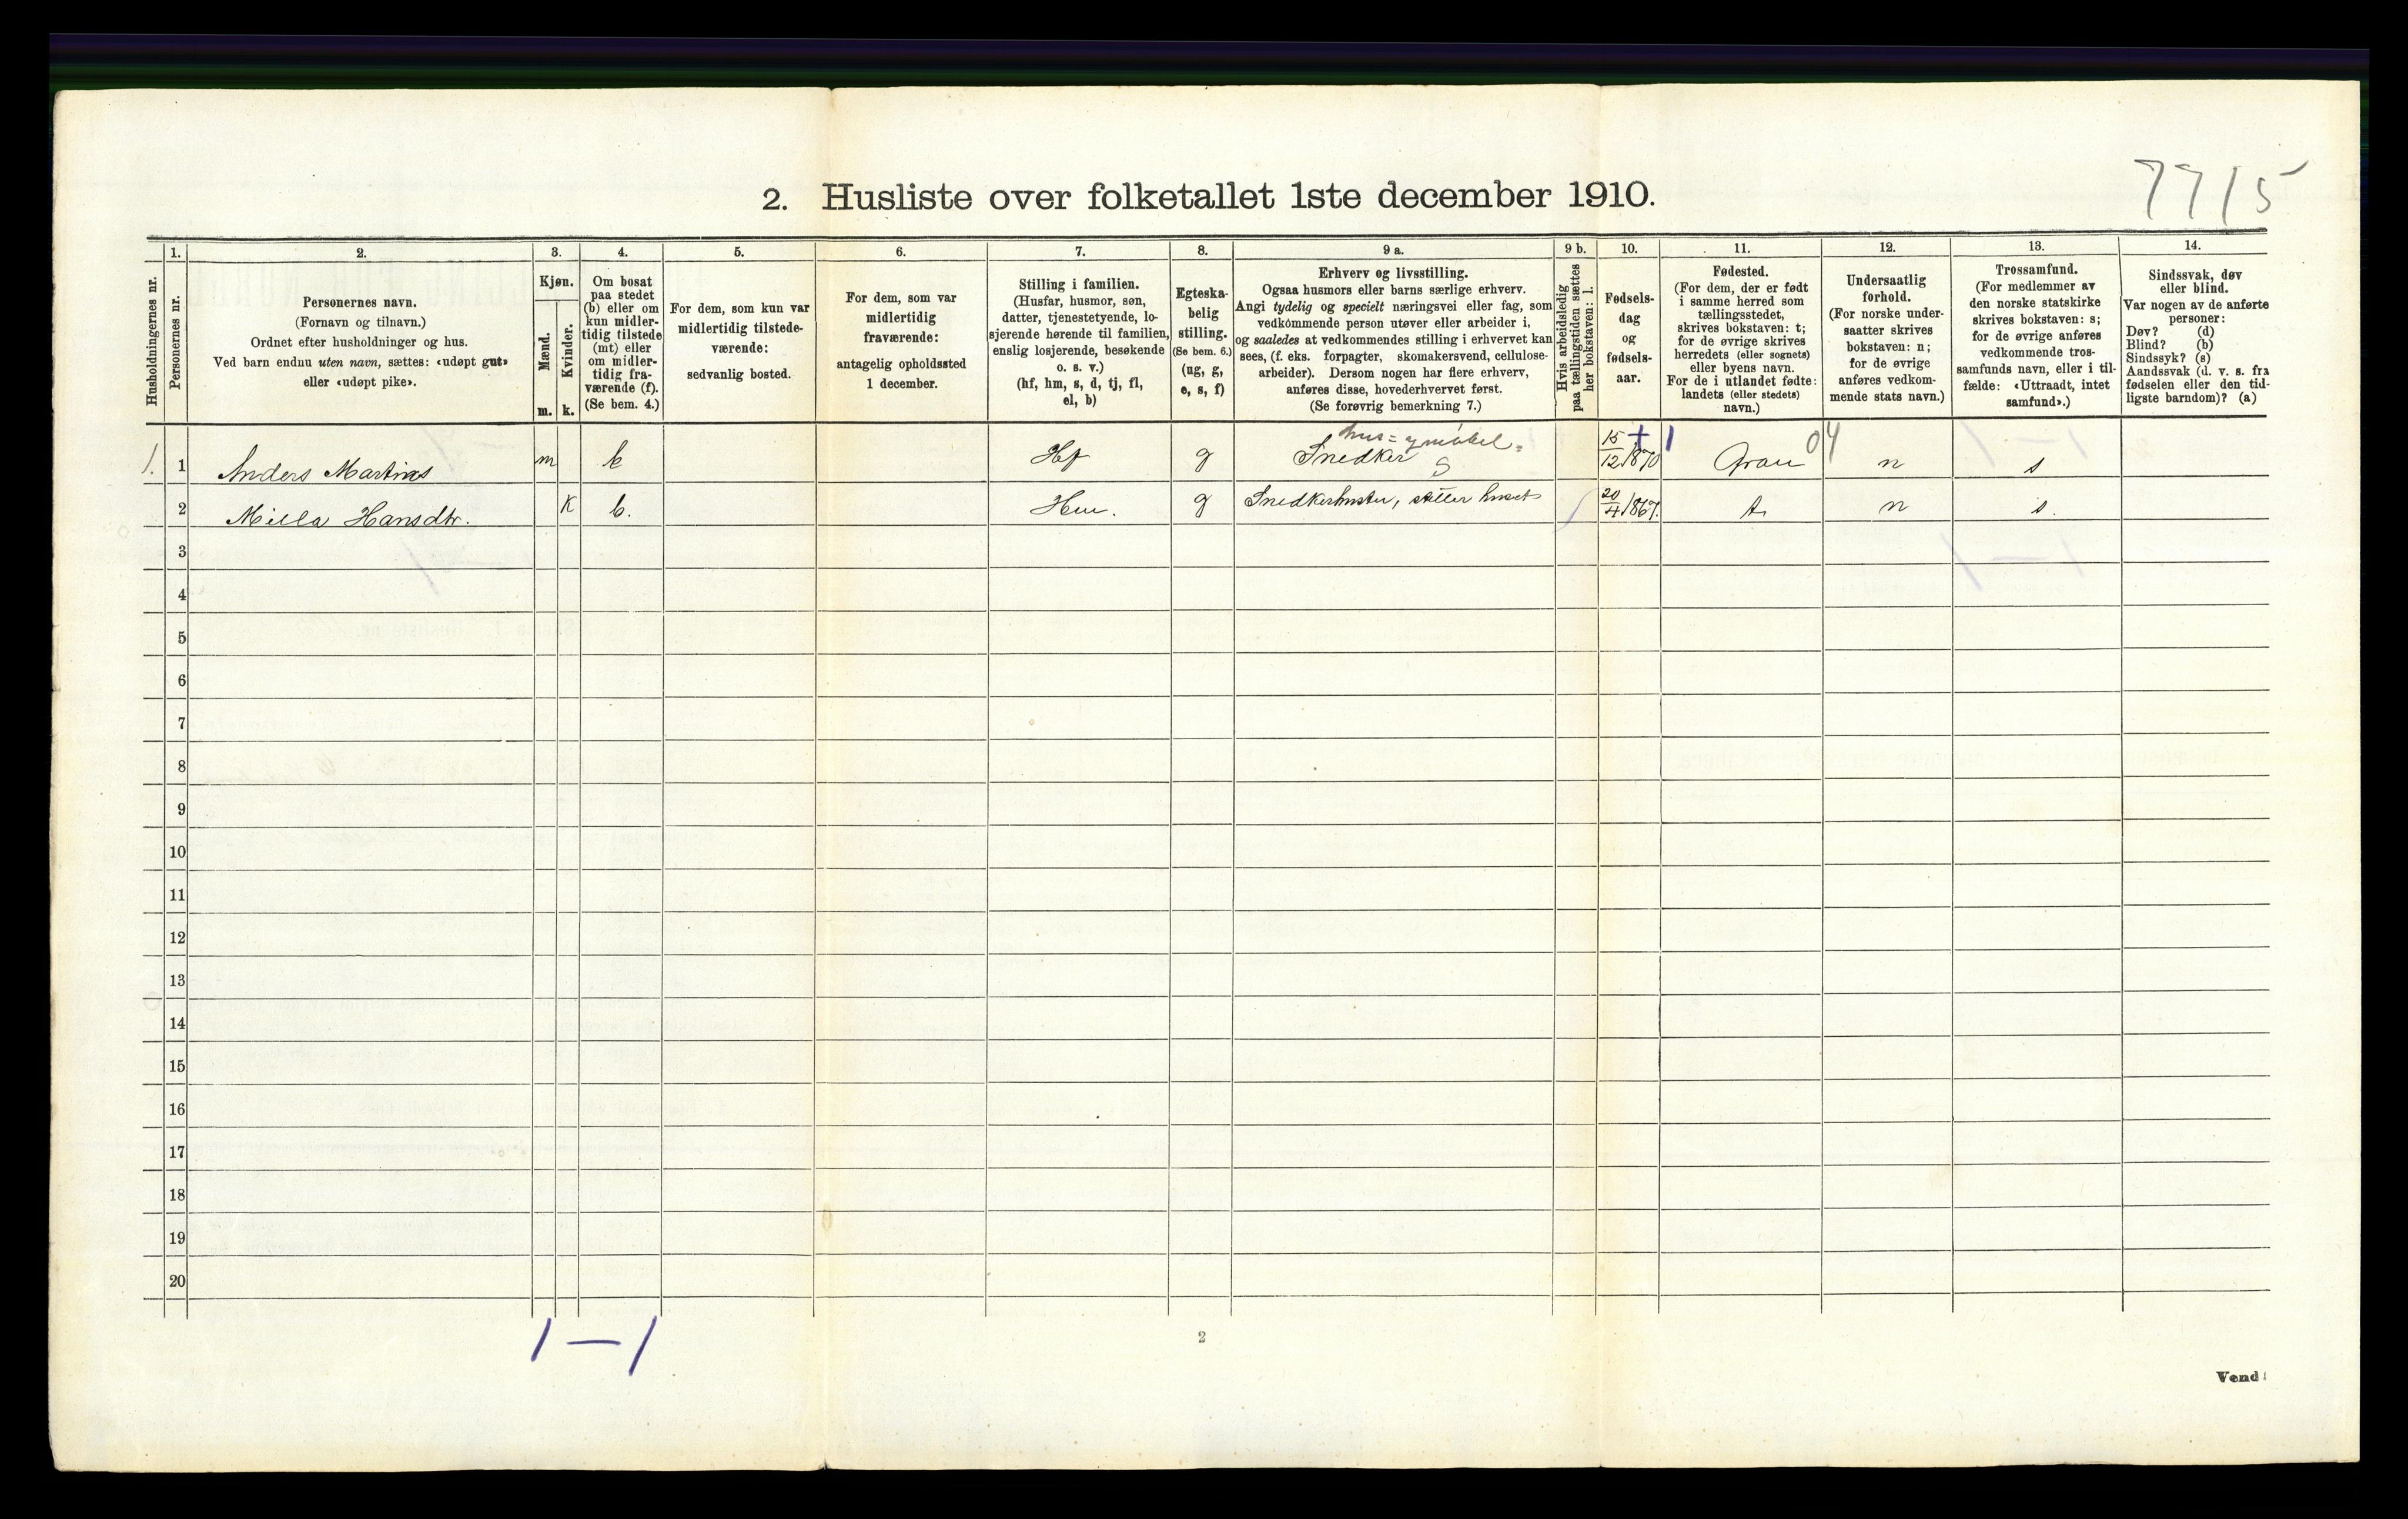 7715
2. Husliste over folketallet 1ste december 1910.
1. 2. 3. 4. 5. 6. 7. 8. 9 a. 9 b. 10. 11. 12. 13. 14.
Husholdningernes nr.
Personernes nr.
Personernes navn.
(Fornavn og tilnavn.)
Ordnet efter husholdninger og hus.
Ved barn endnu uten navn, sættes: «udøpt gut»
eller «udøpt pike».
Kjøn.
Mænd.
m.
Kvinder.
k.
Om bosat
paa stedet
(b) eller om
kun midler-
tidig tilstede
(mt) eller
om midler-
tidig fra-
værende (f).
(Se bem. 4.)
For dem, som kun var
midlertidig tilstede-
værende:
sedvanlig bosted.
For dem, som var
midlertidig
fraværende:
antagelig opholdssted
1 december.
Stilling i familien.
(Husfar, husmor, søn,
datter, tjenestetyende, lo-
sjerende hørende til familien,
enslig losjerende, besøkende
o. s. v.)
(hf, hm, s, d, tj, fl,
el, b)
Egteska-
belig
stilling.
(Se bem. 6.)
(ug, g,
e, s, f)
Erhverv og livsstilling.
Ogsaa husmors eller barns særlige erhverv.
Angi tydelig og specielt næringsvei eller fag, som
vedkommende person utøver eller arbeider i,
og saaledes at vedkommendes stilling i erhvervet kan
sees, (f. eks. forpagter, skomakersvend, cellulose-
arbeider). Dersom nogen har flere erhverv,
anføres disse, hovederhvervet først.
(Se forøvrig bemerkning 7.)
Hvis arbeidsledig
paa tællingstiden sættes
her bokstaven: l.
Fødsels-
dag
og
fødsels-
aar.
Fødested.
(For dem, der er født
i samme herred som
tællingsstedet,
skrives bokstaven: t;
for de øvrige skrives
herredets (eller sognets)
eller byens navn.
For de i utlandet fødte:
landets (eller stedets)
navn.)
Undersaatlig
forhold.
(For norske under-
saatter skrives
bokstaven: n;
for de øvrige
anføres vedkom-
mende stats navn.)
Trossamfund.
(For medlemmer av
den norske statskirke
skrives bokstaven: s;
for de øvrige anføres
vedkommende tros-
samfunds navn, eller i til-
fælde: «Uttraadt, intet
samfund».)
Sindssvak, døv
eller blind.
Var nogen av de anførte
personer:
Døv? (d)
Blind? (b)
Sindssyk? (s)
Aandssvak (d. v. s. fra
fødselen eller den tid-
ligste barndom)? (a)
hus= møbel=
1. 1 Anders m b Hf g Snedker S 15/12 1870 + 1 Gran 04 n s
2 Milla Hansdtr. k b. Hm. g 20/4 1867. t. n s.
3
4
5
6
7
8
9
10
11
12
13
14
15
16
17
18
19
20
1 — 1
2
Vend!